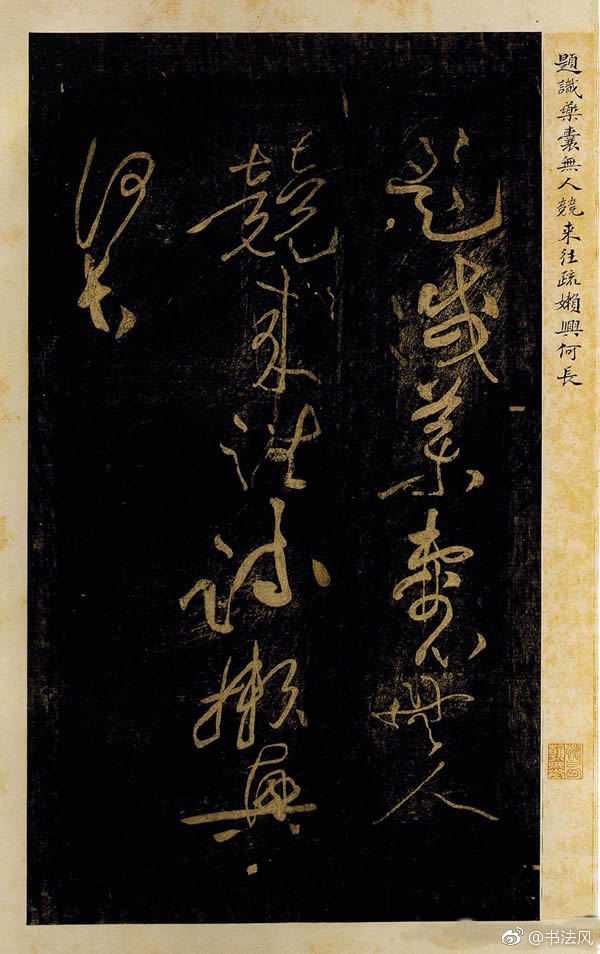 題識藥囊無人競来往疏嬾興何長
題識藥囊無人
競来往疏嬾興
何長
@书法风